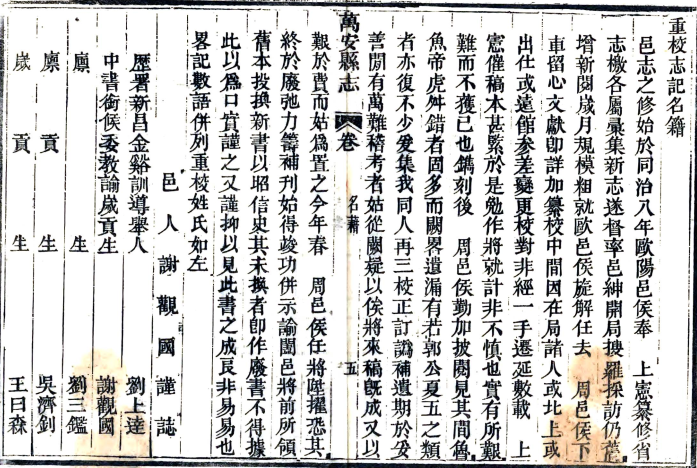 重校志記名籍
邑志之修始於同治八年歐陽邑侯奉　上憲纂修省
志檄各屬彙集新志遂督率邑紳開局搜羅採訪仍舊
增新閱歲月規模粗就歐邑侯旋解任去　周邑侯下
車留心文獻卽詳加纂校中間因在局諸人或北上或
出仕或遠館參差變更校對非經一手遷延數載　上
憲僅稿本甚緊於是勉作將就計非不慎也實有所艱
難而不獲已也鐫刻後　周邑侯勤加披閱見其間魯
魚帝虎舛錯者固多而闕畧遺漏有若郭公夏五之類
者亦復不少爰集我同人再三校正訂譌補遺期於妥
善間有萬難稽考者姑從闕疑以俟將來稿旣成又以
萬安縣志　卷　名籍　五
艱於費而姑爲置之今年春　周邑侯任將陞擢恐其
終於廢弛力籌補刊始得竣功併示諭闔邑將前所領
舊本投換新書以昭信史其未換者卽作廢書不得據
此以爲口實謹之又謹抑以見此書之成良非易易也
畧記數語併列重校姓氏如左
邑人謝觀國謹誌
歷署新昌金谿訓導舉人　劉上達
中書銜候委教諭歲貢生　謝觀國
廩貢生　劉三鑑
廩貢生　吳濟釗
歲貢生　王日森